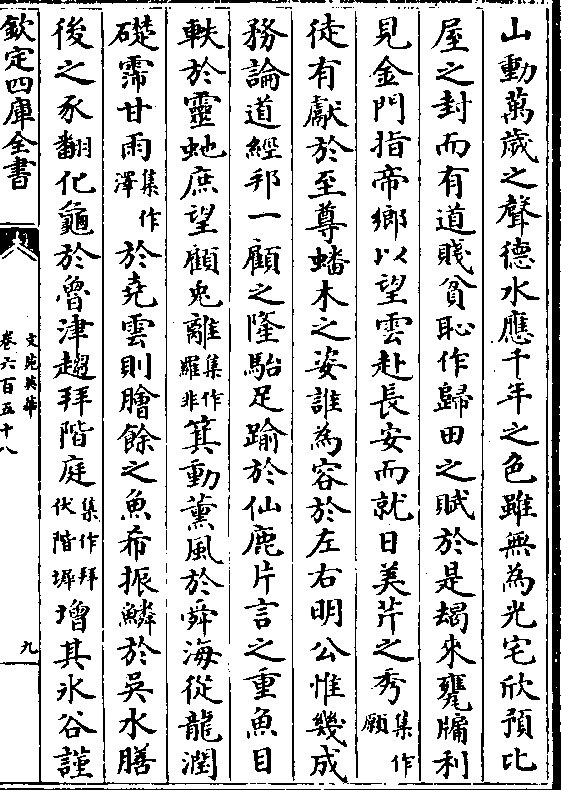 山動萬歲之聲德水應千年之色雖無為光宅欣預比
屋之封而有道賤貧恥作歸田之賦於是朅來甕牖利
見金門指帝鄉以望雲赴長安而就日美芹之秀集作願
徒有獻於至尊蟠木之姿誰為容於左右明公惟幾成
務論道經邦一顧之隆駘足踰於仙鹿片言之重魚目
軼於靈虵庶望顧兎離集作羅非箕動薰風於舜海從龍潤
礎霈甘雨集作澤於堯雲則膾餘之魚希振鱗於吳水膳
後之豕翻化龜於魯津趨拜階庭集作拜伏階墀增其氷谷謹
欽定四庫全書
文苑英華
卷六百五十八
九